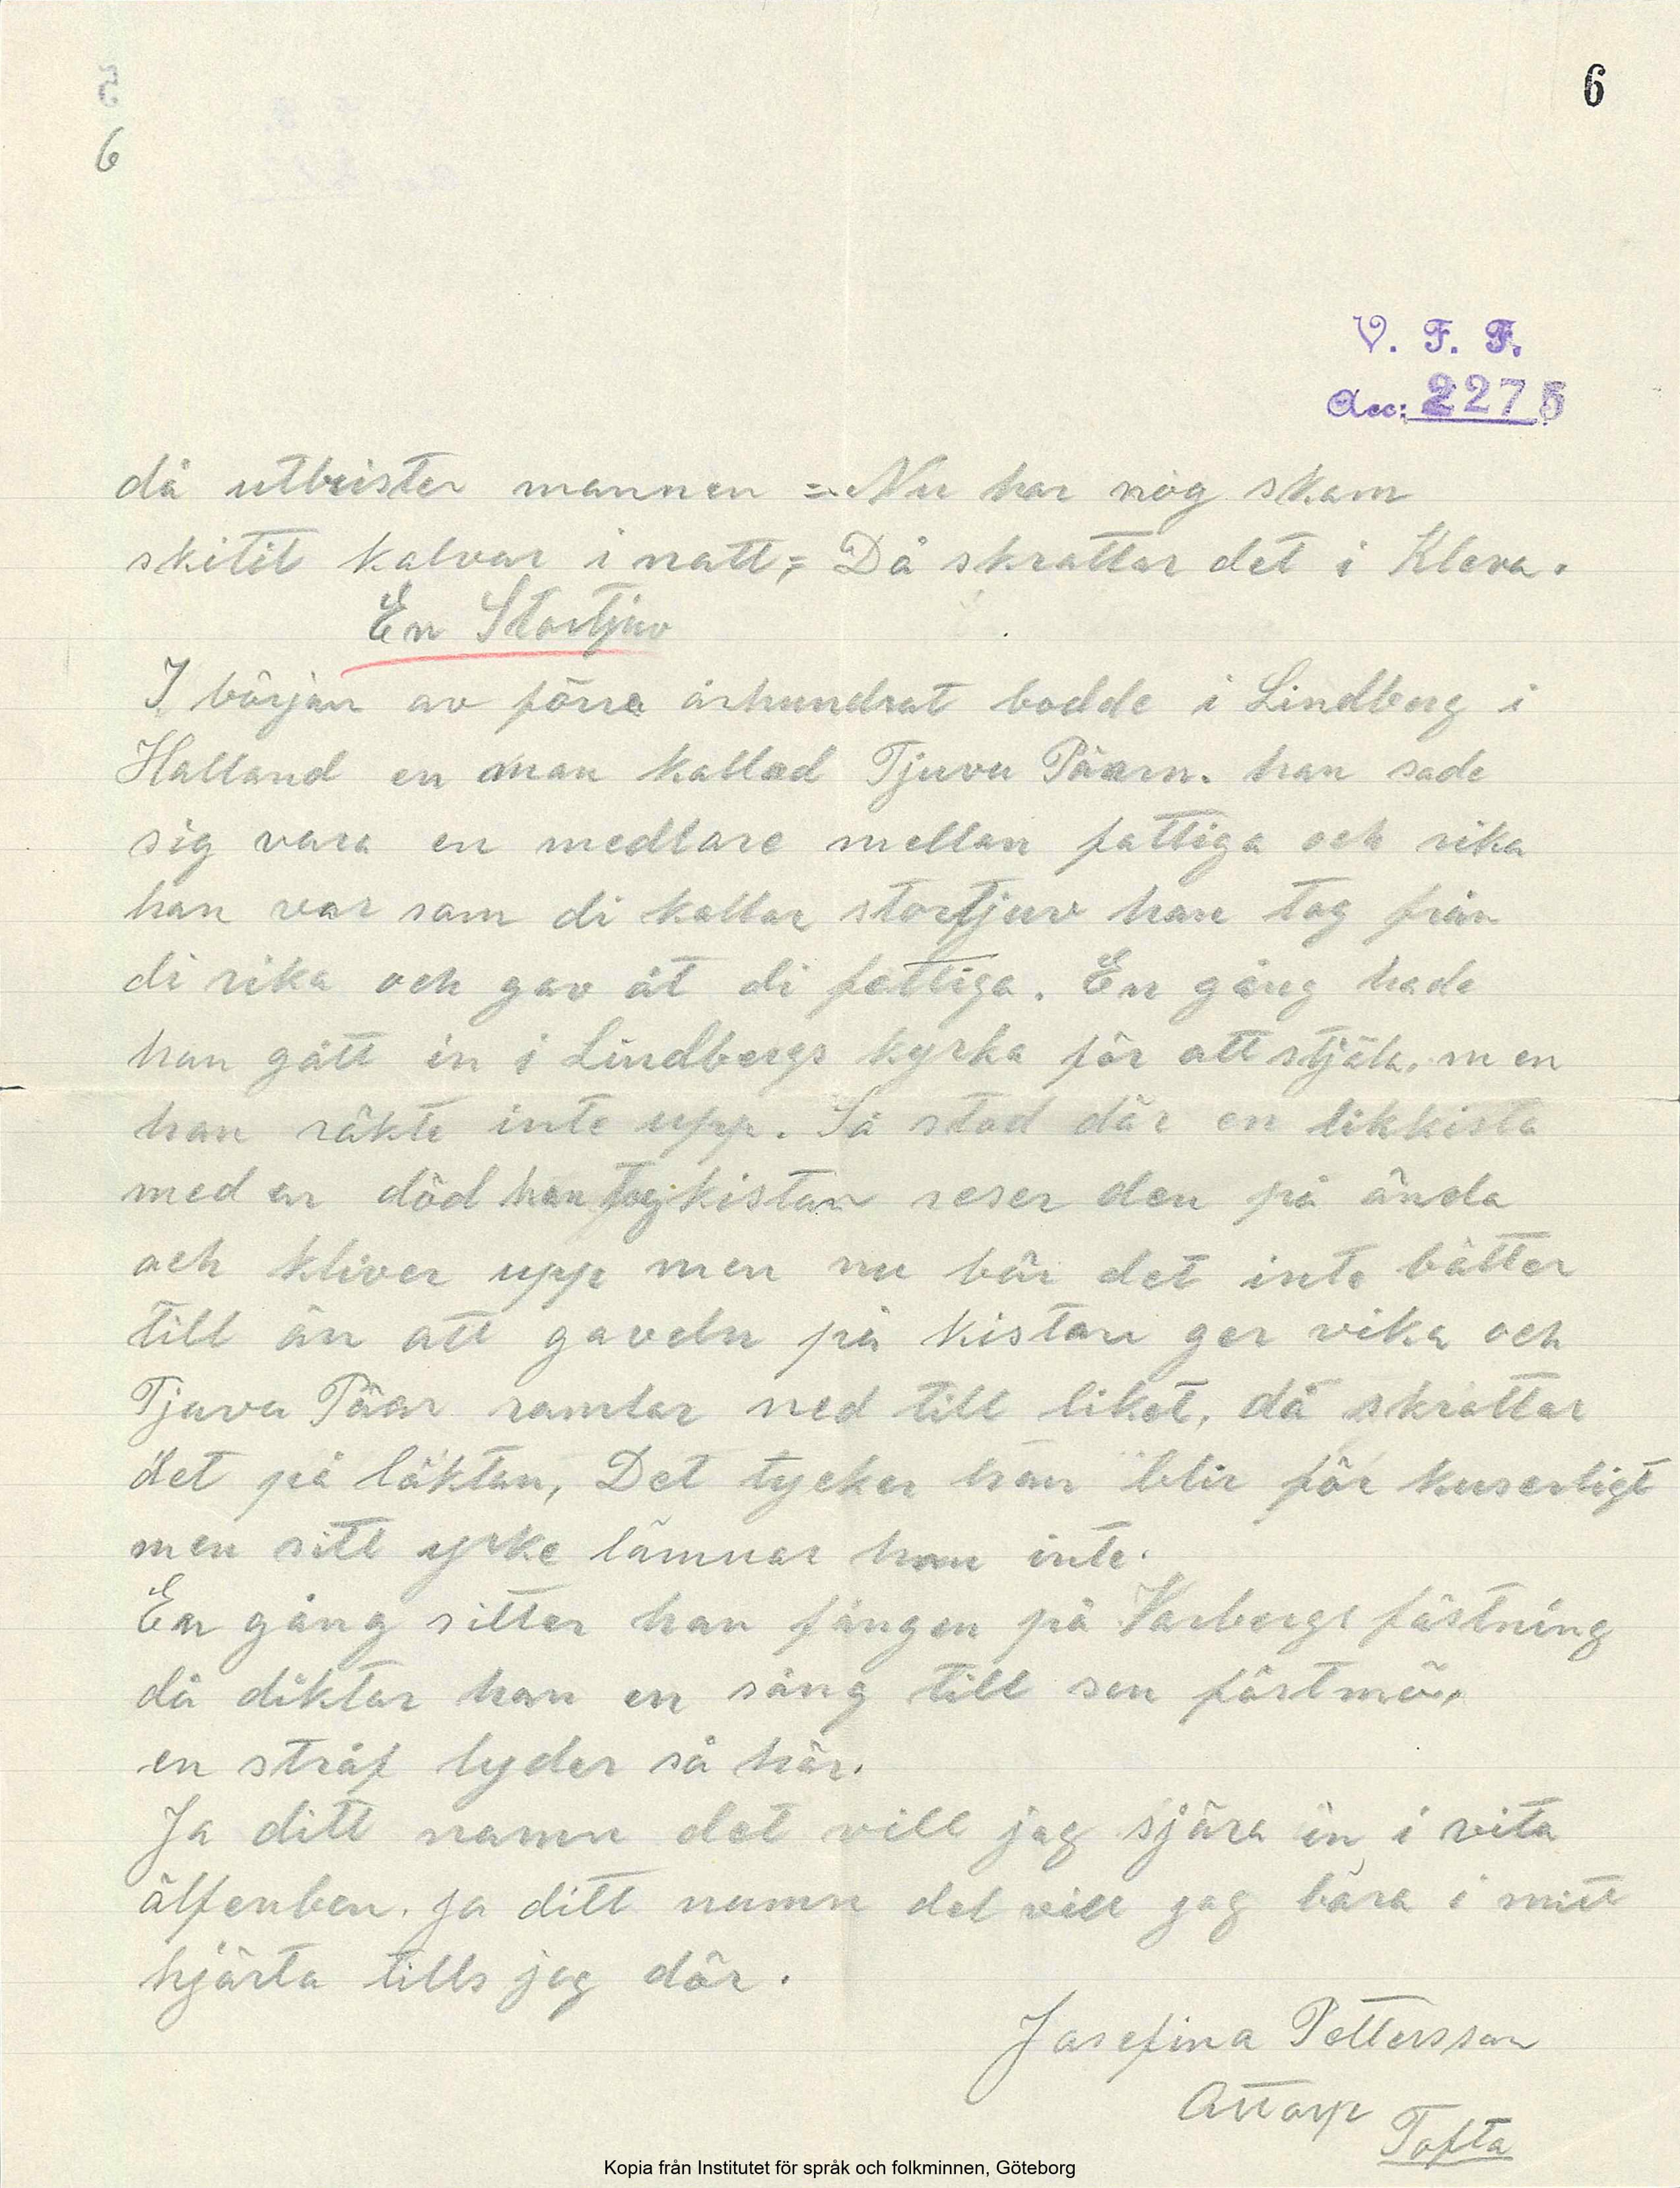 6
5
6
V. F. F.
Acc: 2275
då utbrister mannen = Nu har nog skam
skitit kalvar i natt, = Då skrattar det i Kleva.
En Stortjuv
I början av förra århundrat bodde i Lindberg i
Halland en man kallad Tjuva Päarn. han sade
sig vara en medlare mellan fattiga och rika
han var som di kallar stortjuv han tog från
di rika och gav åt di fattiga. En gång hade
han gått in i Lindbergs kyrka för att stjäla. men
han räkte inte upp. Så stod där en likkista
med en död han tog kistan reser den på ända
och kliver upp men nu bär det inte bätter
till än att gaveln på kistan ger vika och
Tjuva Päar ramlar ned till liket, då skrattar
det på läktan, Det tycker han blir för kuserligt
men sitt yrke lämnar han inte.
En gång sitter han fången på Varbergs fästning
då diktar han en sång till sen fästmö,
en stråf lyder så här.
Ja ditt namn det vill jag sjära in i vita
älfenben. ja ditt namn det vill jag bära i mitt
hjärta tills jag dör.
Josefina Pettersson
Attarp
Tofta
Kopia från Institutet för språk och folkminnen, Göteborg